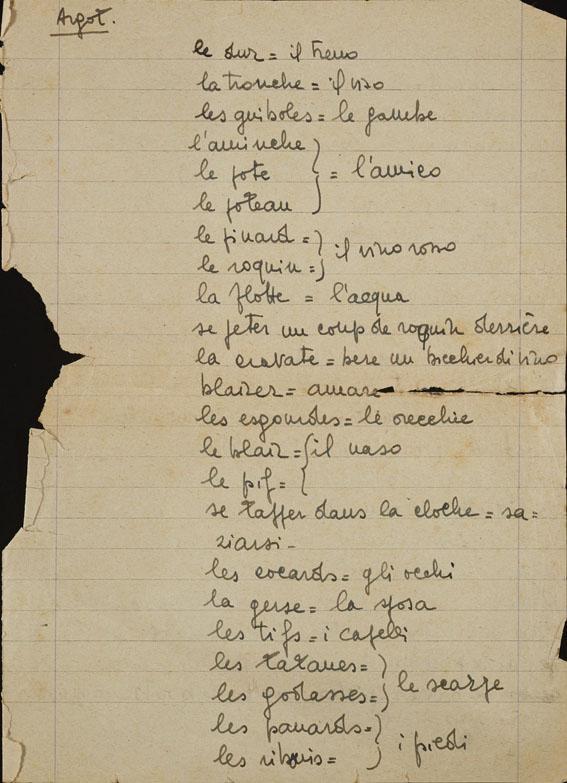 Argot.
le dur = il treno
la tronche = il viso
les guiboles = le gambe
l'aminche
le pote } = l'amico
le poteau
le pinard = } il vino rosso
le roquin =
la flotte = l'acqua
se jéter un coup de roquin derrière
la cravate = bere un bicchier di vino
blairer = amare
les esgourdes = le orecchie
le blair = { il naso
le pif =
se taffer dans la cloche = sa=
ziarsi -
les cocards = gli occhi
la gerse = la sposa
les tifs = i capelli
les tatanes = } le scarpe
les godasses =
les panards = } i piedi
les ribouis =